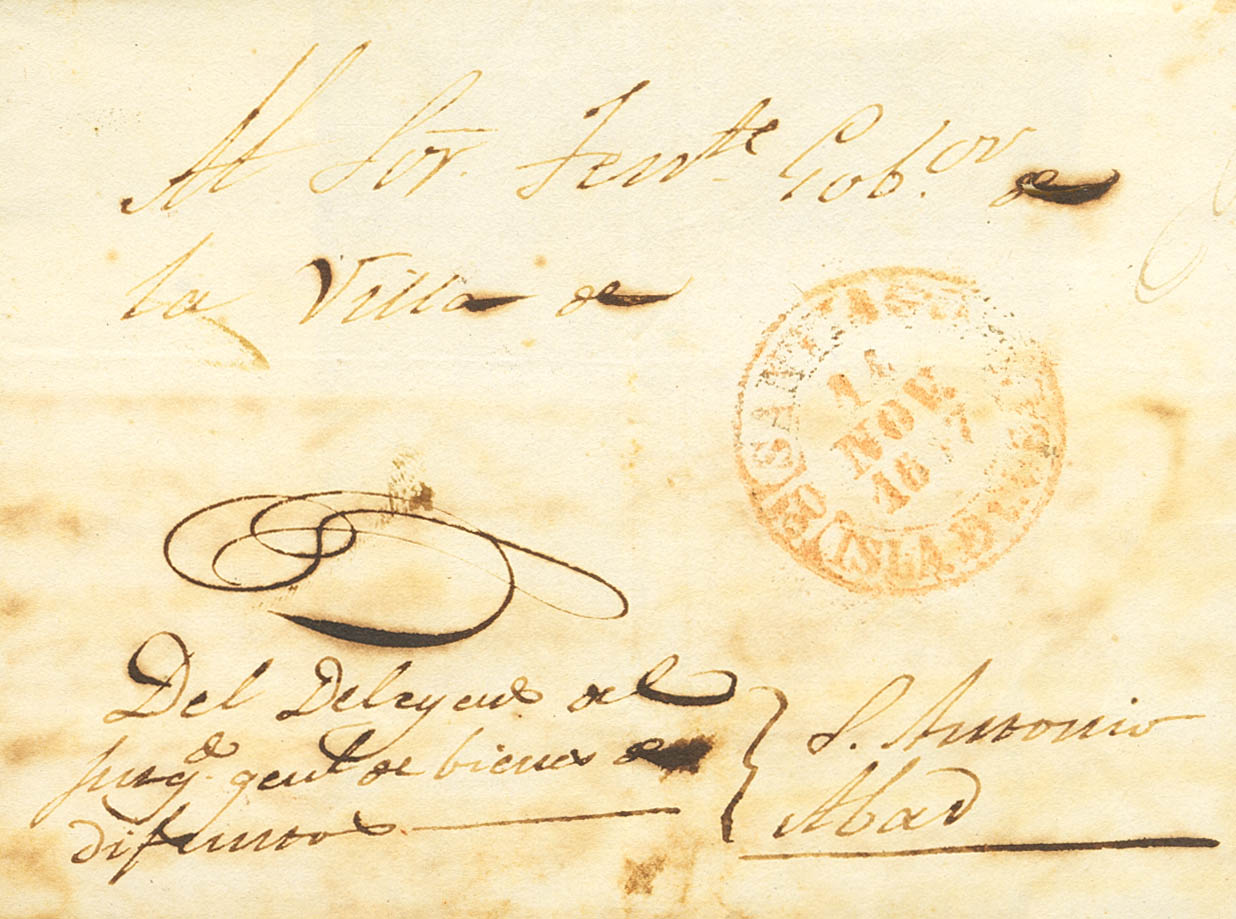 Al Sor. Tente. Gobor. de
la Villa de
SANTIAGO
NOE
ISLA DE CUBA
Del Delegdo del
Juzgdo. genl. de bienes de
difuntos
S. Antonio
Abad